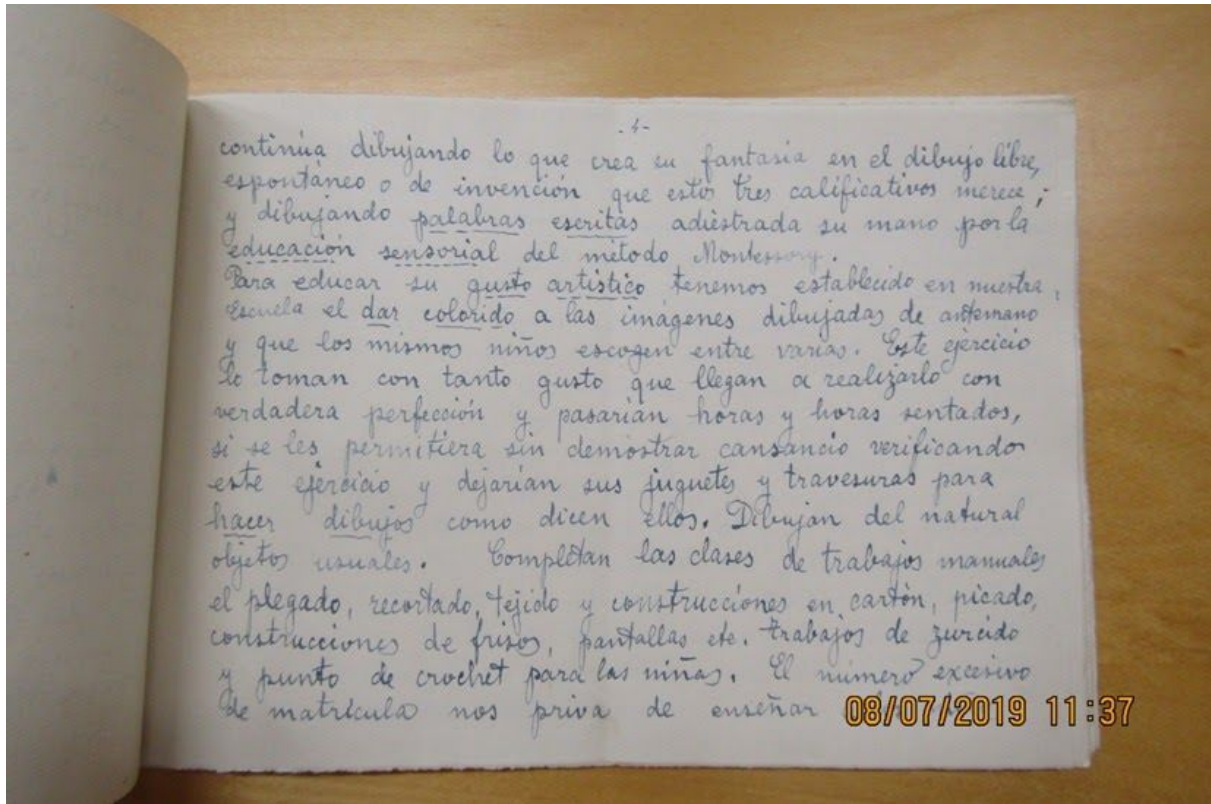 -4-
continúa dibujando lo que crea su fantasía en el dibujo libre,
espontáneo o de invención que estos tres calificativos merece;
y dibujando palabras escritas adiestrada su mano por la
educación sensorial del método Montessory.
Para educar su gusto artístico tenemos establecido en nuestra
Escuela el dar colorido a las imágenes dibujadas de antemano
y que los mismos niños escogen entre varias. Este ejercicio
lo toman con tanto gusto que llegan a realizarlo con
verdadera perfección y pasarían horas y horas sentados,
si se les permitiera sin demostrar cansancio verificando
este ejercicio y dejarían sus juguetes y travesuras para
hacer dibujos como dicen ellos. Dibujan del natural
objetos usuales. Complétan las clases de trabajos manuales
el plegado, recortado, tejido y construcciones en cartón, picado,
construcciones de frisos, pantallas etc. trabajos de zurcido
y punto de crochet para las niñas. El número excesivo
de matrícula nos priva de enseñar
08/07/2019 11:37